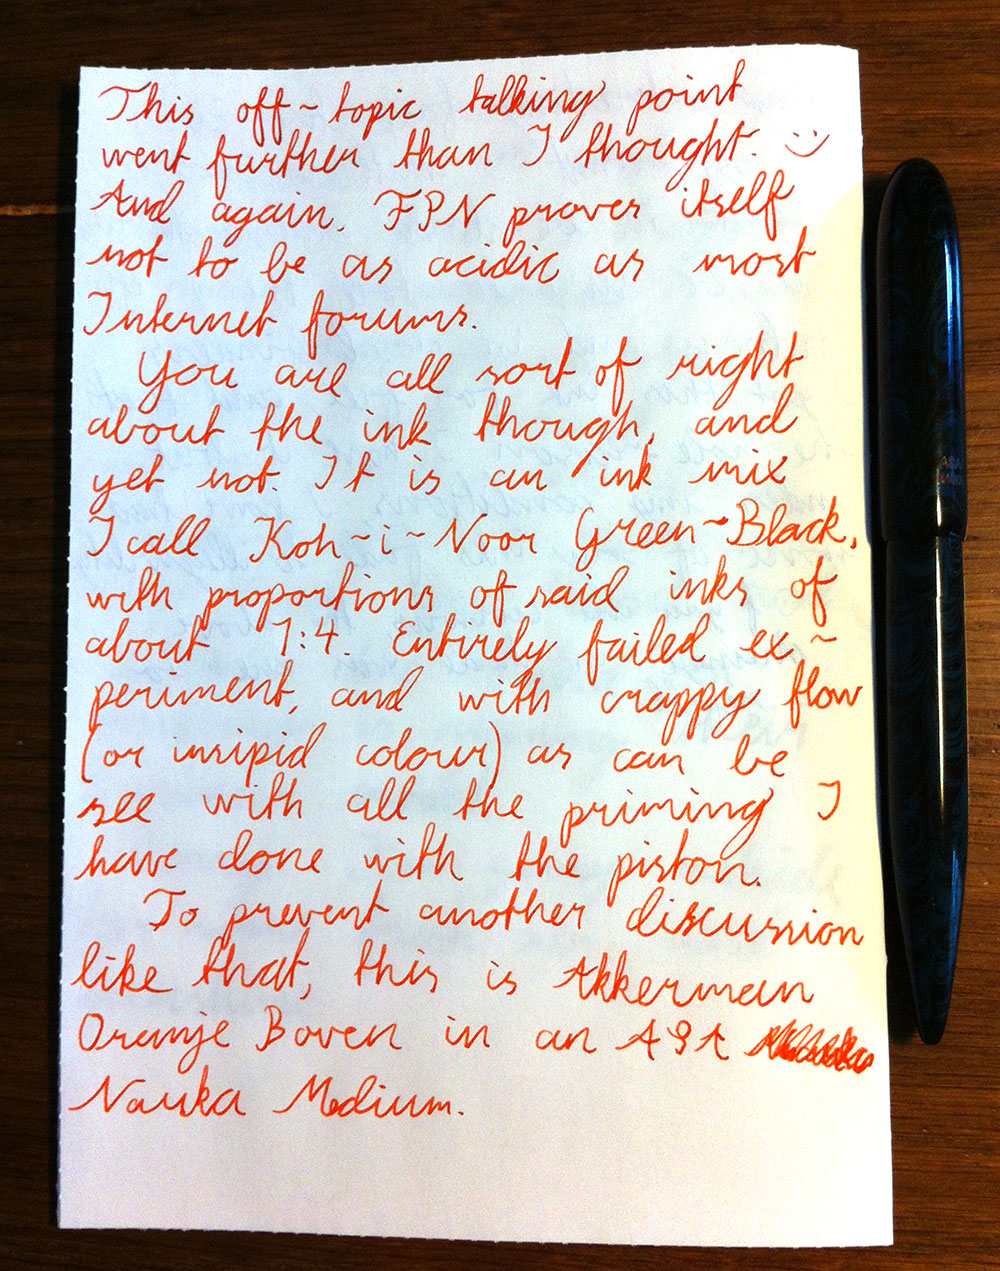 This off-topic talking point
went further than I thought. :)
And again, FPN proves itself
not to be as acidic as most
Internet forums.
You are all sort of right
about the ink though, and
yet not. It is an ink mix
I call Koh-i-Noor Green-Black,
with proportions of said inks of
about 1:4. Entirely failed ex-
periment, and with crappy flow
(or insipid colour) as can be
see with all the priming I
have done with the piston.
To prevent another discussion
like that, this is Akkerman
Oranje Boven in an ASA
Nauka Medium.